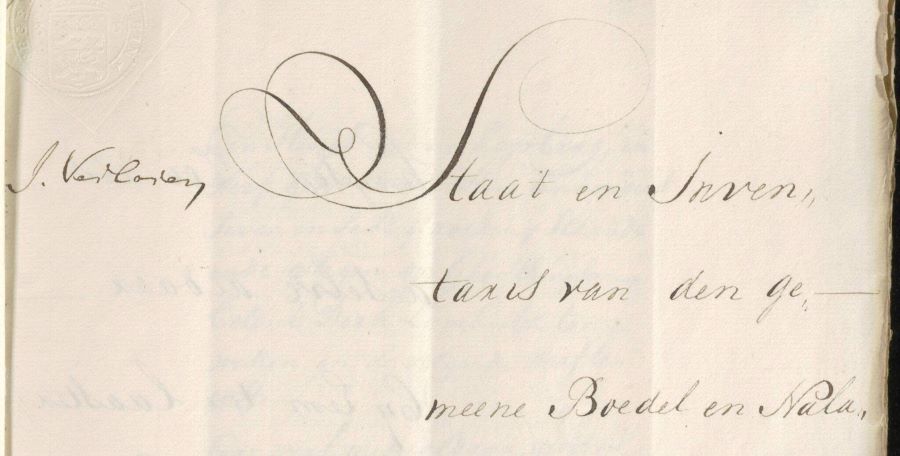 J. Verloren
Staat en Inven„
taris van den ge„
meene Boedel en Nala„